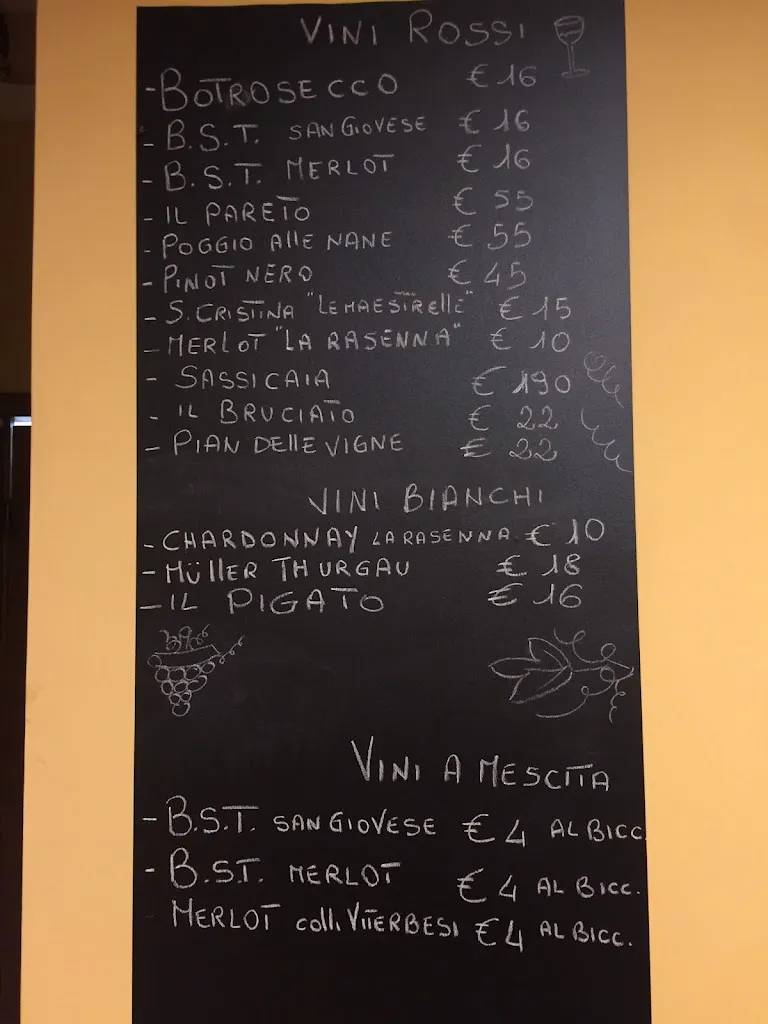 VINI ROSSI
- BOTROSECCO € 16
- B.S.T. SANGIOVESE € 16
- B.S.T. MERLOT € 16
- IL PARETO € 55
- POGGIO AllE NANE € 55
- PINOT NERO € 45
- S. CRISTINA "LE MAESTRELLE" € 15
- MERLOT "LA RASENNA" € 10
- SASSICAIA € 190
- IL BRUCIATO € 22
- PIAN DEllE VIGNE € 22
VINI BIANCHI
- CHARDONNAY LA RASENNA € 10
- MÜllER THURGAU € 18
- IL PIGATO € 16
VINI A MESCITA
- B.S.T. SANGIOVESE € 4 AL BICC.
- B.S.T. MERLOT € 4 AL BICC.
MERLOT colli VITERBESI € 4 AL BICC.